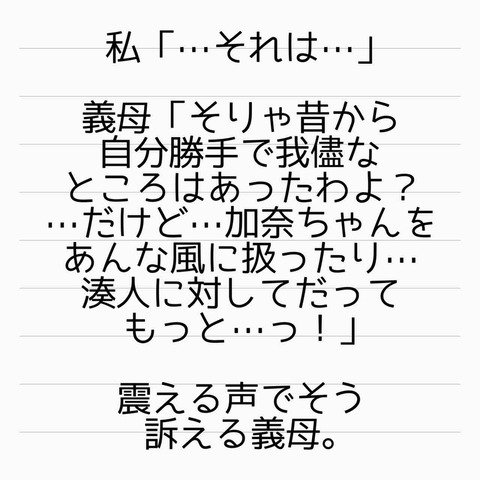 私「…それは…」
義母「そりゃ昔から
自分勝手で我儘な
ところはあったわよ？
…だけど…加奈ちゃんを
あんな風に扱ったり…
湊人に対してだって
もっと…っ！」
震える声でそう
訴える義母。